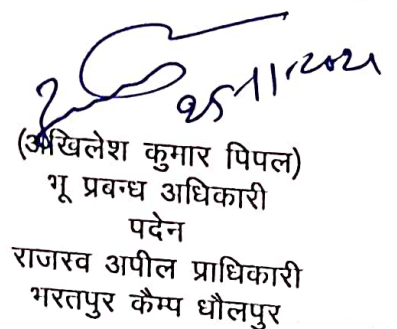 25-11-2021
(अखिलेश कुमार पिपल)
भू प्रबन्ध अधिकारी
पदेन
राजस्व अपील प्राधिकारी
भरतपुर कैम्प धौलपुर